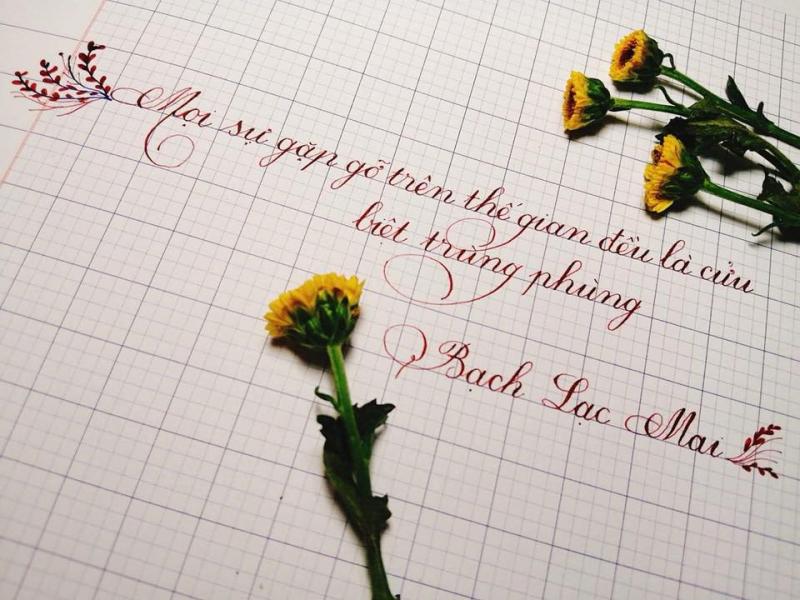 Mọi sự gặp gỡ trên thế gian đều là cửu
biệt trùng phùng
Bạch Lạc Mai